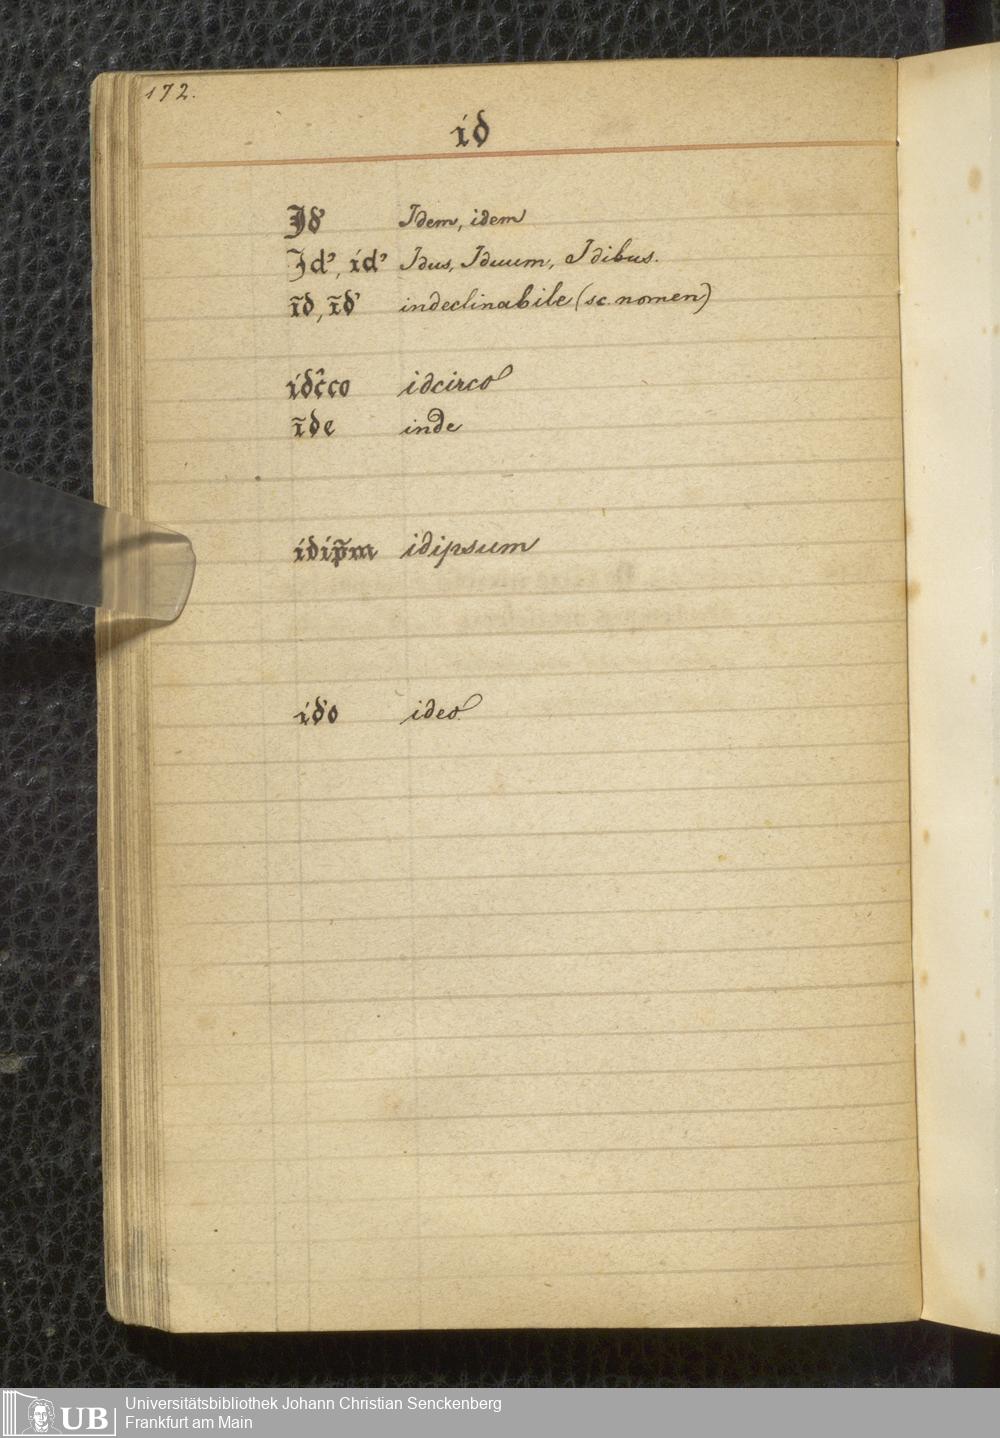 172.
id
Id' Idem, idem
Id⁹, id⁹ Idus, Iduum, Idibus.
ĩd, ĩd' indeclinabile (sc. nomen)
idĉco idcirco
ĩde inde
idip̃m idipsum
id'o ideo
Universitätsbibliothek Johann Christian Senckenberg
UB Frankfurt am Main